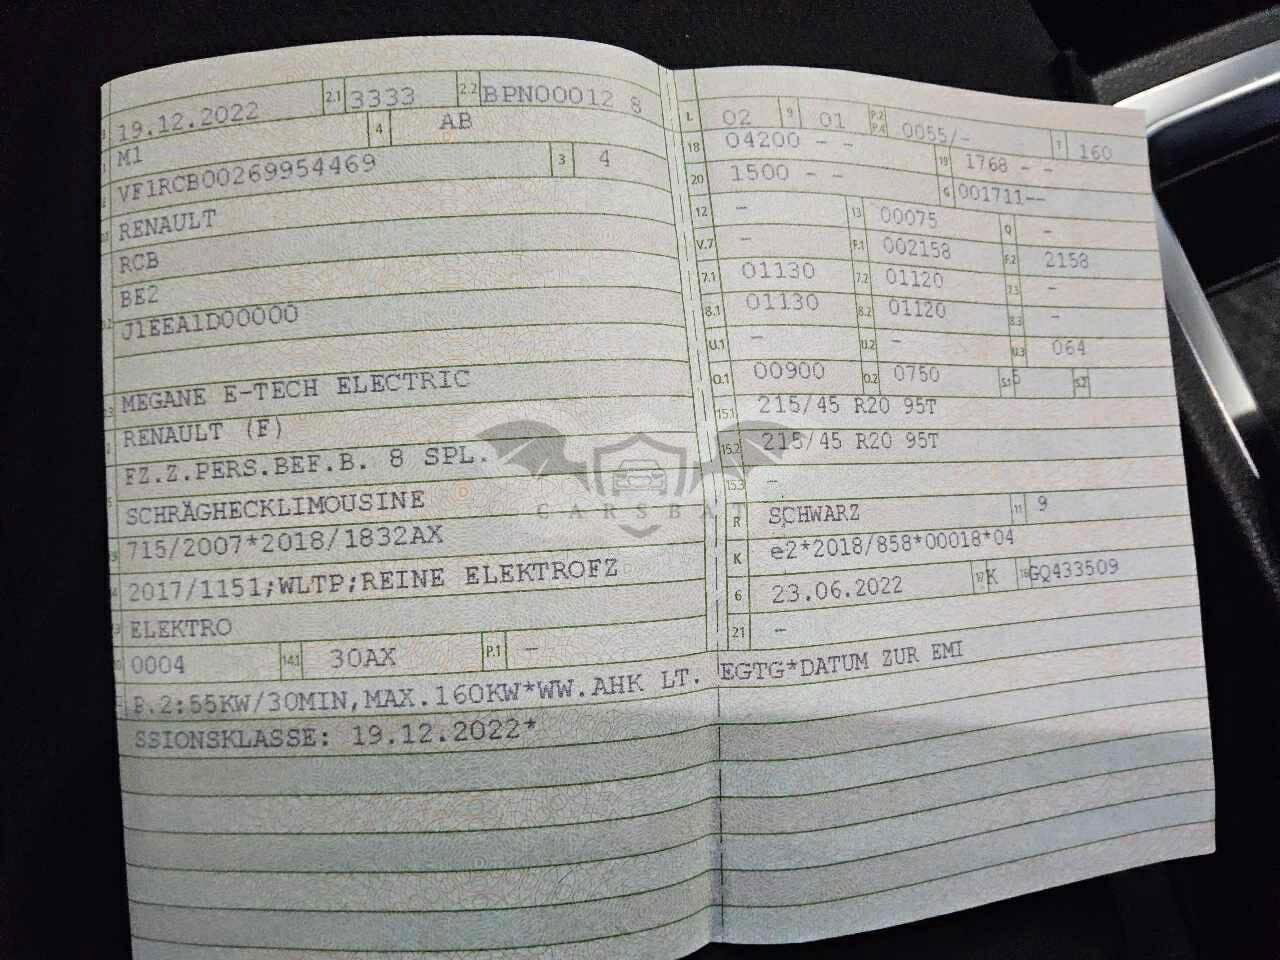 19.12.2022 2.1 3333 2.2 BPN00012 8
M1 4 AB
VF1RCB00269954469 3 4
RENAULT
RCB
BE2
J1EEA1D00000
MEGANE E-TECH ELECTRIC
RENAULT (F)
FZ.Z.PERS.BEF.B. 8 SPL.
SCHRÄGHECKLIMOUSINE
715/2007*2018/1832AX
2017/1151;WLTP;REINE ELEKTROFZ
ELEKTRO
0004 14.1 30AX P.1 -
P.2:55KW/30MIN,MAX.160KW*WW.AHK LT. EGTG*DATUM ZUR EMI
SSIONSKLASSE: 19.12.2022*
L 02 9 01 P.2 P.4 0055/- T 160
18 04200 - - 19 1768 - -
20 1500 - - G 001711--
12 - 13 00075 Q -
V.7 - F.1 002158 F.2 2158
7.1 01130 7.2 01120 7.3 -
8.1 01130 8.2 01120 8.3 -
U.1 - U.2 - U.3 064
O.1 00900 O.2 0750 S.1 5 S.2
15.1 215/45 R20 95T
15.2 215/45 R20 95T
15.3 -
R SCHWARZ 11 9
K e2*2018/858*00018*04
6 23.06.2022 17 K 16 GQ433509
21 -
CARSBAT